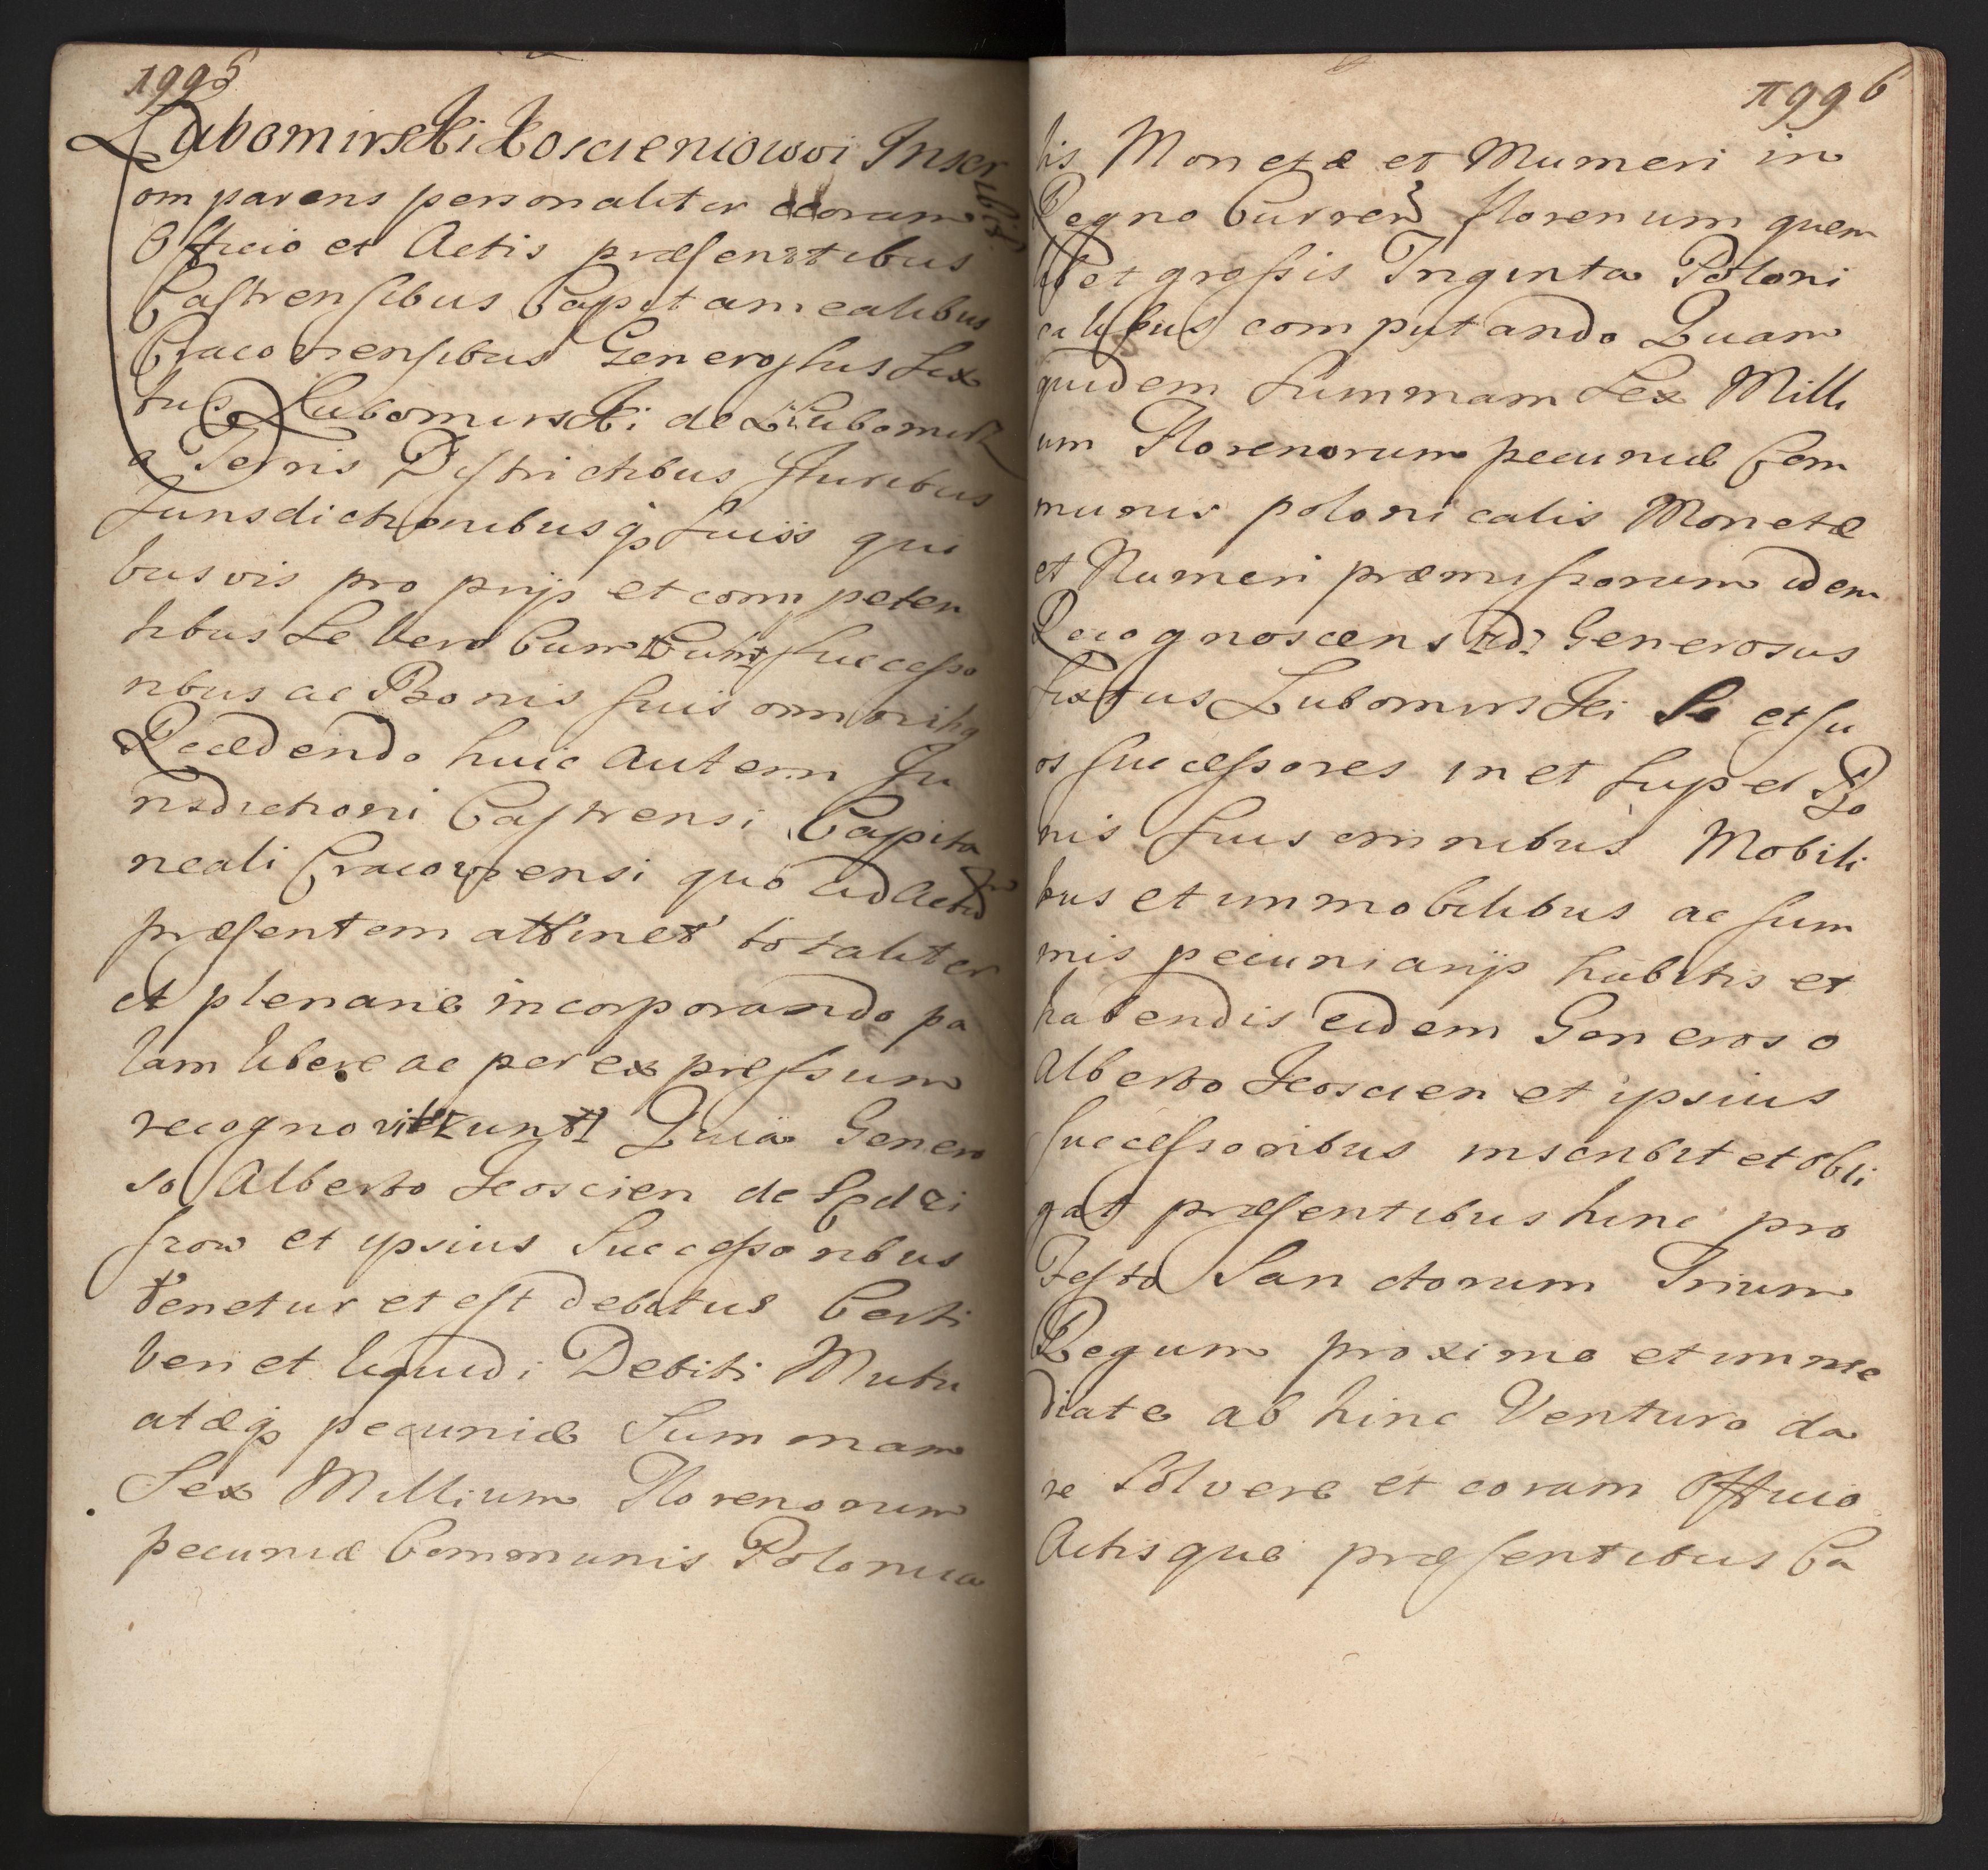 1995
Lubomirski Koscieniowi Inscribit
Comparens personaliter coram
Officio et Actis præsentibus
Castrensibus Capitanealibus
Cracoviensibus Generosus Six
tus Lubomirski de Lubomirz
a Terris Districtibus Juribus
Jurisdictionibusq₃ Suiis qui
busvis pro prijs et competen
tibus Se vero Cum Successo
ribus ac Bonis suis omnoribq
Recedendo huic autem Ju
risdictioni Castrensi Capita
neali Cracoviensi quo ad Actum
præsentem attinet totaliter
et plenarie incorporando pa
lam libere ac per expressum
recognovit Quia Genero
so Alberto Koscien de Sędzi
szow et ipsius Successoribus
tenetur et est debitus Certi
Veri et liquidi Debiti Mutu
atæq₃ pecuniæ Summam
Sex Millium Florenorum
pecuniæ Communis Polonica
1996
lis Monetæ et Numeri in
Regno Curren̄ florenum quem
libet grossis Triginta Poloni
calibus computando Quam
quidem Summam Sex Milli
um Florenorum pecuniæ Com
munis polonicalis Monetæ
et Numeri præmissorum idem
Recognoscens Generosus
Sixtus Lubomirski Se et su
os successores in et super Bo
nis Suis omnibus Mobili
bus et immobilibus ac sum
mis pecuniarijs habitis et
habendis eidem Generoso
Alberto Koscien et ipsius
successoribus inscribit et obli
gat præsentibus hinc pro
Festo Sanctorum Trium
Regum proxime et imme
diate ab hinc Venturo da
re Solvere et coram Officio
Actisque præsentibus Ca